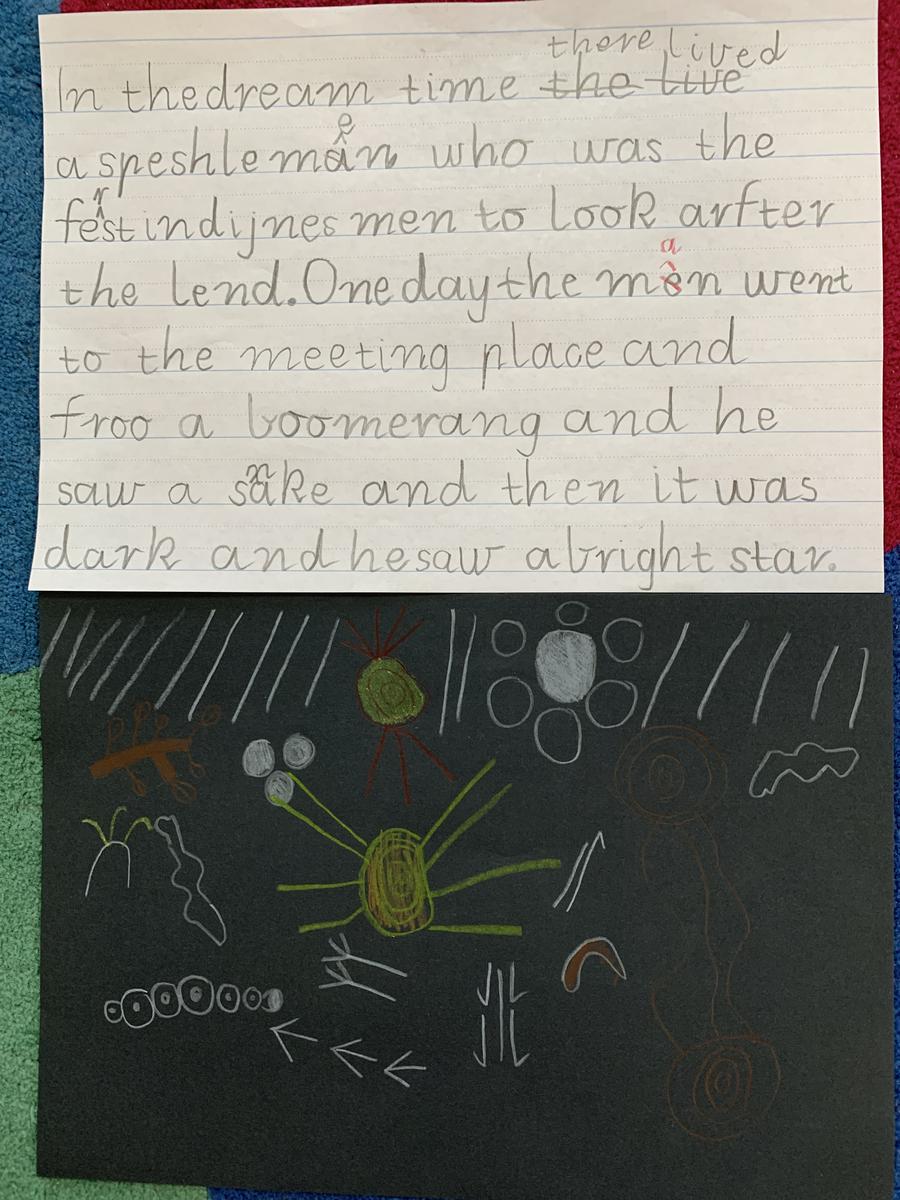 there lived
In thedream time the live
a speshle men who was the
ferst indijnes men to look arfter
the lend. One day the man went
to the meeting place and
froo a boomerang and he
saw a snake and then it was
dark and he saw a bright star.